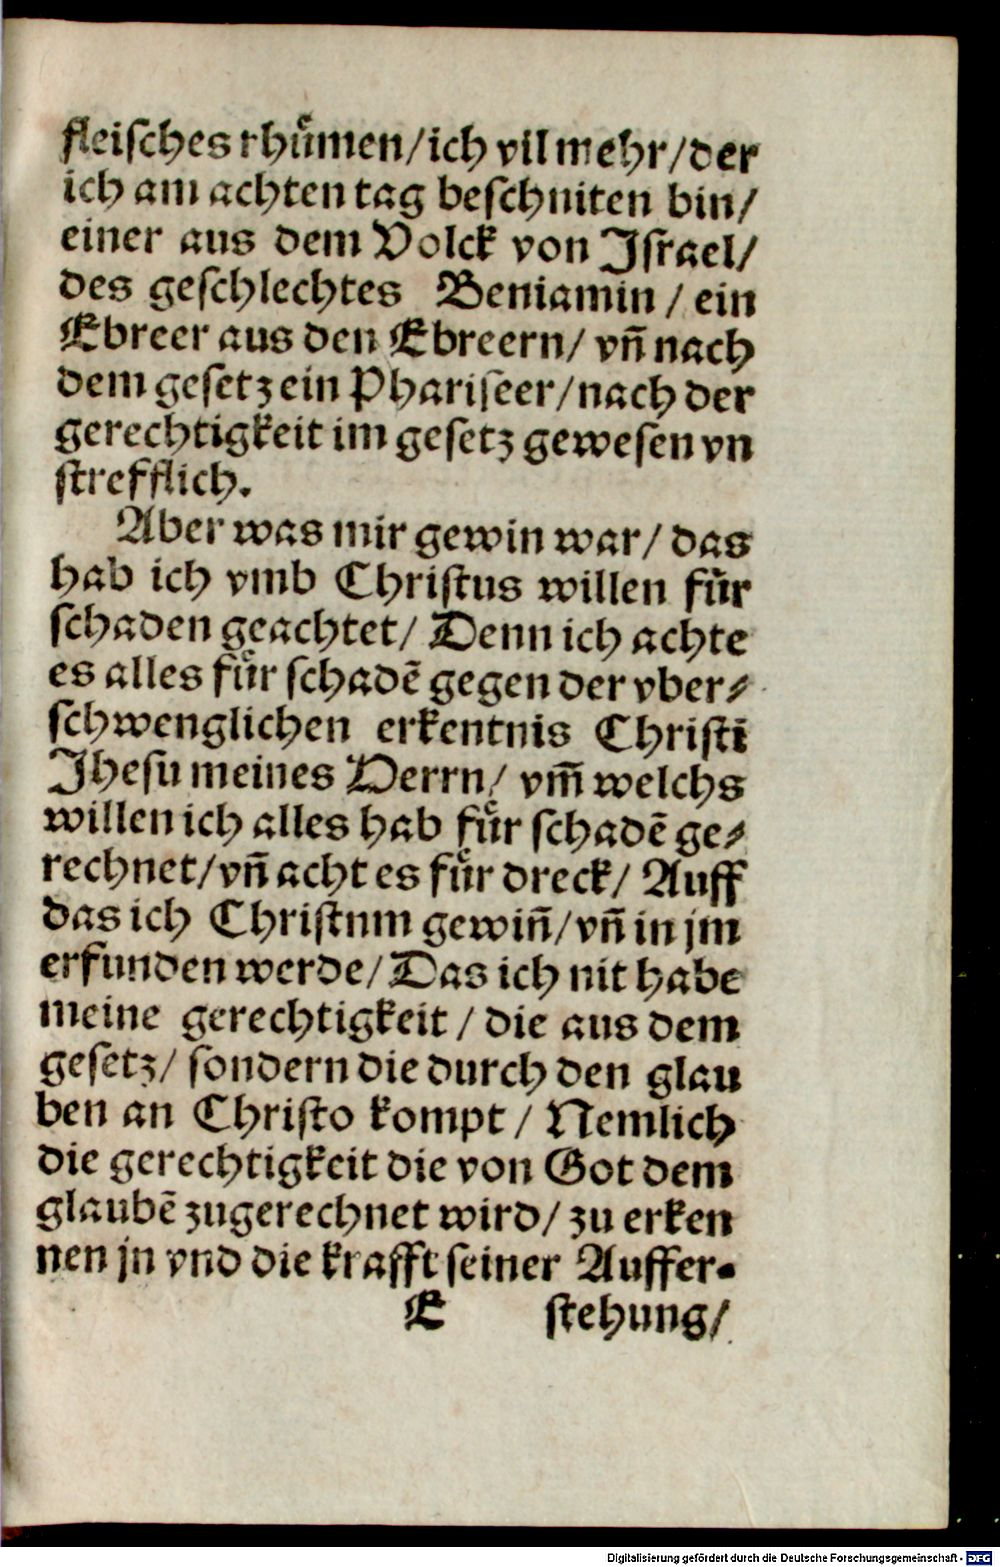 fleiſches rhuͤmen/ich vil mehr/der
ich am achten tag beſchniten bin/
einer aus dem Volck von Iſrael/
des geſchlechtes Beniamin / ein
Ebreer aus den Ebreern/ vñ nach
dem geſetz ein Phariſeer/nach der
gerechtigkeit im geſetz geweſen vn
ſtrefflich.
Aber was mir gewin war/ das
hab ich vmb Chriſtus willen fuͤr
ſchaden geachtet/ Denn ich achte
es alles fuͤr ſchadẽ gegen der vber⸗
ſchwenglichen erkentnis Chriſti
Iheſu meines Herrn/ vm̃ welchs
willen ich alles hab fuͤr ſchadẽ ge⸗
rechnet/vñ acht es fuͤr dreck/ Auff
das ich Chriſtnm gewiñ/vñ in jm
erfunden werde/Das ich nit habe
meine gerechtigkeit / die aus dem
geſetz/ ſondern die durch den glau
ben an Chriſto kompt / Nemlich
die gerechtigkeit die von Got dem
glaubẽ zugerechnet wird/ zu erken
nen jn vnd die krafft ſeiner Auffer⸗
E ſtehung/
Digitalisierung gefördert durch die Deutsche Forschungsgemeinschaft - DFG